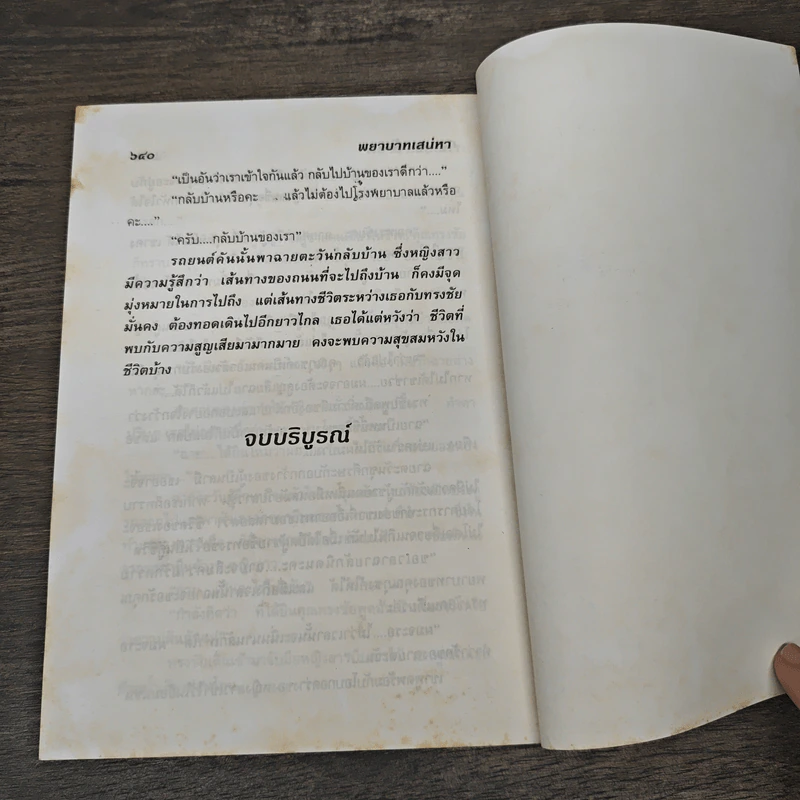 ๖๔๐ พยาบาทเสน่หา
“เป็นอันว่าเราเข้าใจกันแล้ว กลับไปบ้านของเราดีกว่า....”
“กลับบ้านหรือคะ . แล้วไม่ต้องไปโรงพยาบาลแล้วหรือ
คะ....”
“ครับ....กลับบ้านของเรา”
รถยนต์คันนั้นพาฉายตะวันกลับบ้าน ซึ่งหญิงสาว
มีความรู้สึกว่า เส้นทางของถนนที่จะไปถึงบ้าน ก็คงมีจุด
มุ่งหมายในการไปถึง แต่เส้นทางชีวิตระหว่างเธอกับทรงชัย
มั่นคง ต้องทอดเดินไปอีกยาวไกล เธอได้แต่หวังว่า ชีวิตที่
พบกับความสูญเสียมามากมาย คงจะพบความสุขสมหวังใน
ชีวิตบ้าง
จบบริบูรณ์